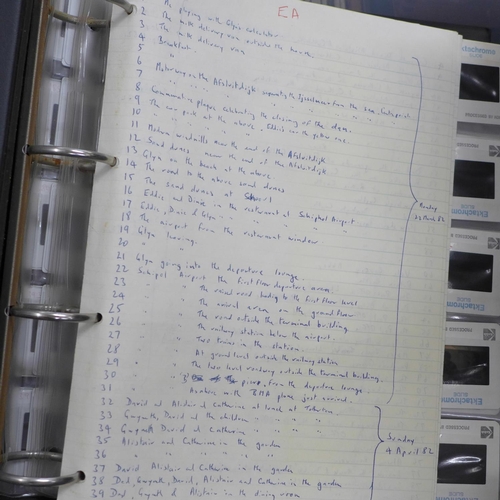 EA
playing with Glyn calculator
2 The milk delivery van outside the
3 The milk delivery van
4 Breakfast.
5 "
6 Motorway on the Afsluitdijk separating the Ijsselmeer from the sea,
7 " " " " "
8 Commemorative plaque celebrating the closing of the dam.
9 " " " " "
10 The car park at the above. Eddie's car the yellow one.
11
12 Modern windmills near the end of the Afsluitdijk
13 Sand dunes near the end of the Afsluitdijk
14 Glyn on the beach at the above
15 The road to the above sand dunes
16 The sand dunes at
17 Eddie and Dinie in the restaurant at Schiphol Airport
18 Eddie, Dinie & Glyn " " "
19 The airport from the restaurant window
20 Glyn leaving.
21 Glyn going into the departure lounge.
22 Schipol Airport the first floor departure area.
23 " the road leading to the first floor level
24 " the arrival area on the ground floor
25 " The road outside the terminal building.
26 " the railway station below the airport.
27 " Two trains in the station.
28 " At ground level outside the railway station
29 " The two level roadway outside the terminal building.
30 " from the departure lounge.
31 " with BMA plane just arrived.
Monday 29 March 82
32 David at Alistair & Catherine at lunch at
33 Gwyneth David & the children " "
34 Gwyneth David & Catherine " "
35 Alistair and Catherine in the garden
36 " " " "
37 David Alistair and Catherine in the garden
38 Dad, Gwyneth, David, Alistair and Catherine in the garden
39 Dad, Gwyneth & Alistair in the dining room
Sunday 4 April 82
Ektachrome
SLIDE
Ektachrome
SLIDE
Ektachrome
SLIDE
PROCESSED BY
Ektachrome
SLIDE
PROCESSED BY KODAK